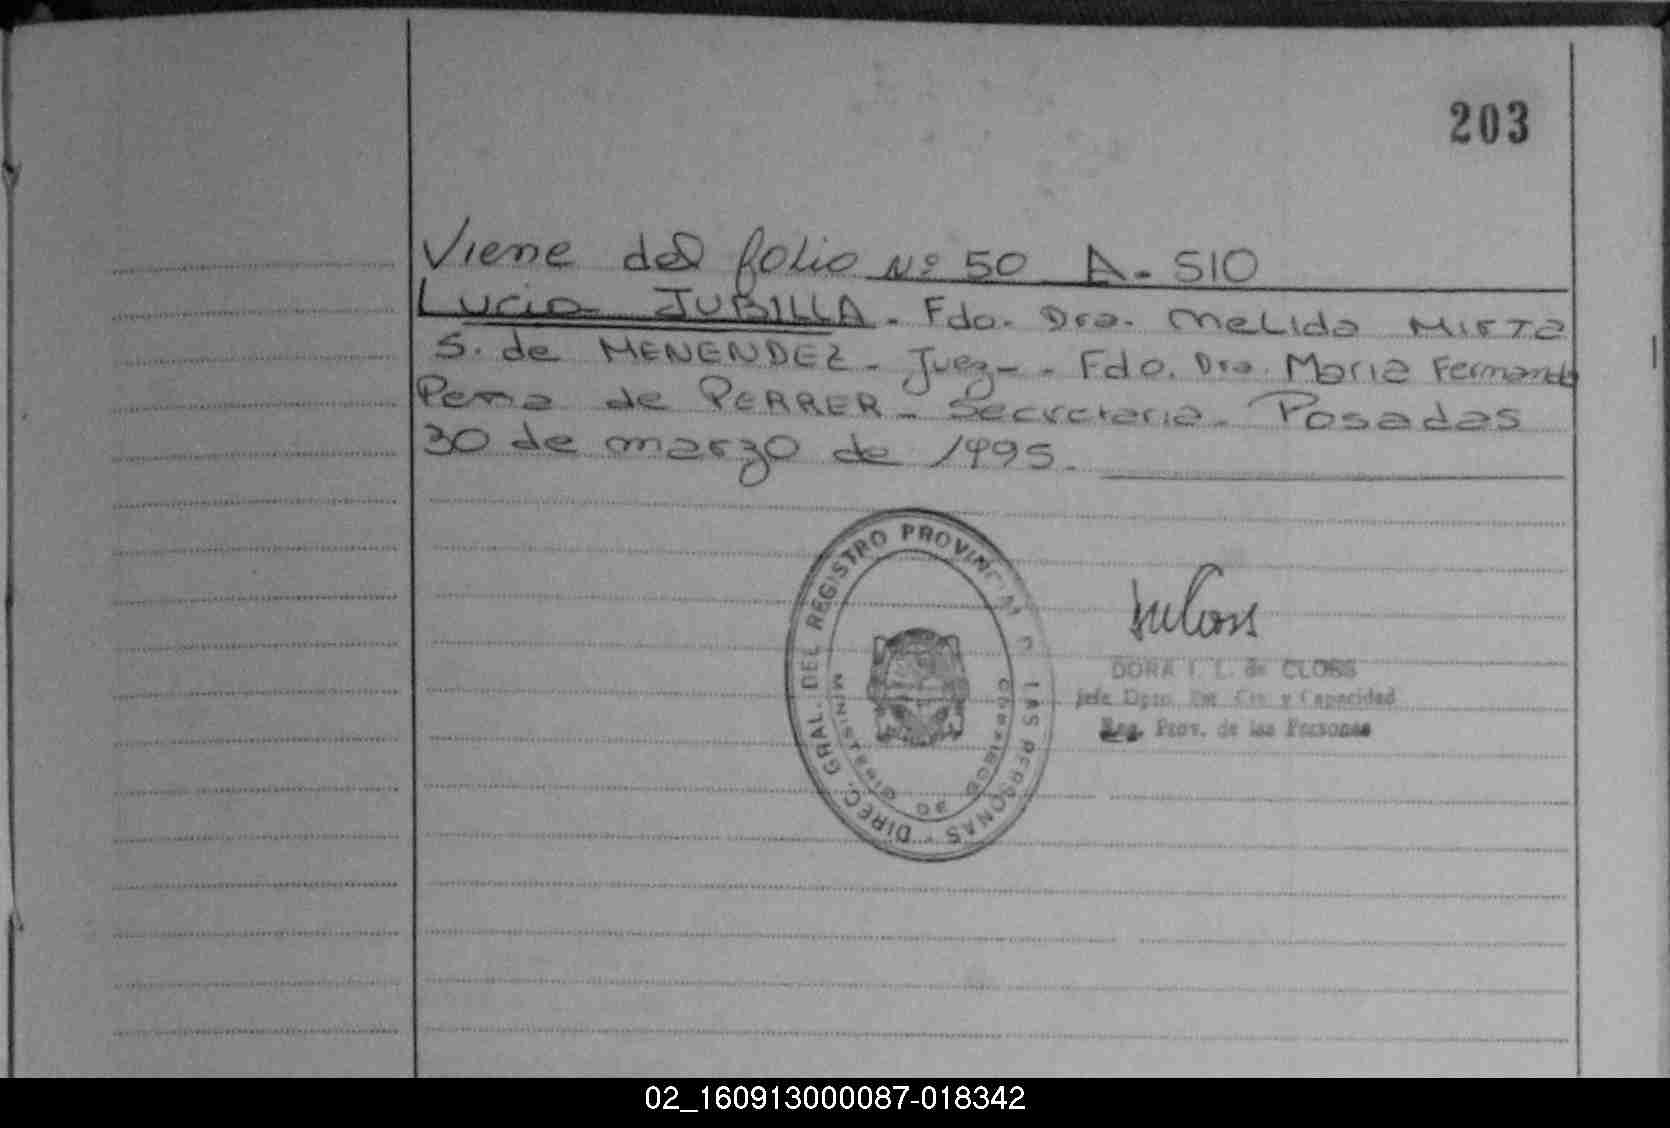 203
Viene del folio Nº 50 A - 510
Lucia JUBILLA - Fdo. Dra. Melida MIRTA
S. de MENENDEZ - Juez - . Fdo. Dra. Maria Fernanda
Pema de PERRER - Secretaria - Posadas
30 de marzo de 1995. -
DIREC. GRAL. DEL REGISTRO PROVINCIAL DE LAS PERSONAS -
MINISTERIO DE GOBIERNO
DORA I. L. de CLOSS
Jefe Dpto. Est. Civ. y Capacidad
Reg. Prov. de las Personas
02_160913000087-018342